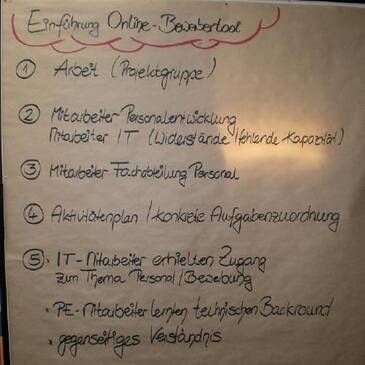 Einführung Online-Bewerbertool
① Arbeit (Projektgruppe)
② Mitarbeiter Personalentwicklung
Mitarbeiter IT (Widerstände / fehlende Kapazität)
③ Mitarbeiter Fachabteilung Personal
④ Aktivitätenplan / konkrete Aufgabenzuordnung
⑤ • IT-Mitarbeiter erhielten Zugang
zum Thema Personal/Bewerbung
• PE-Mitarbeiter lernten technischen Backround
• gegenseitiges Verständnis